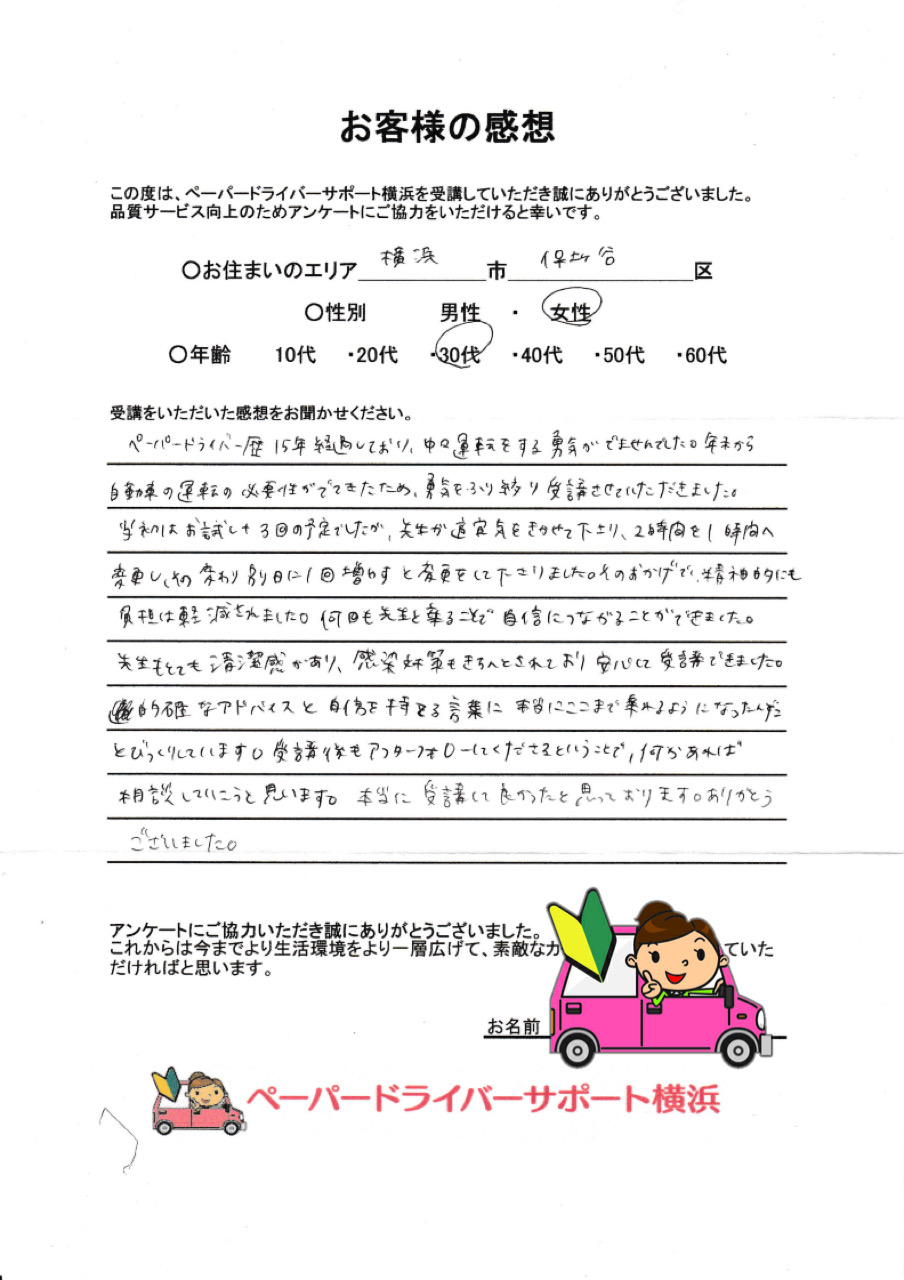 お客様の感想
この度は、ペーパードライバーサポート横浜を受講していただき誠にありがとうございました。
品質サービス向上のためアンケートにご協力をいただけると幸いです。
〇お住まいのエリア 横浜 市 保土ヶ谷 区
〇性別 男性 ・ 女性
〇年齢 10代 ・20代 ・30代 ・40代 ・50代 ・60代
受講をいただいた感想をお聞かせください。
ペーパードライバー歴15年経過しており、中々運転をする勇気がでませんでした。年末から
自動車の運転の必要性がでてきたため、勇気をふり絞り受講させていただきました。
当初はお試し+3回の予定でしたが、先生が適宜気をきかせて下さり、2時間を1時間へ
変更し、その変わり別日に1回増やすと変更をして下さりました。そのおかげで、精神的にも
負担は軽減されました。何回も先生と乗ることで自信につながることができました。
先生もとても清潔感があり、感染対策もきちんとされており安心して受講できました。
的確なアドバイスと自信を持てる言葉に本当にここまで乗れるようになったんだ
とびっくりしています。受講後もアフターフォローしてくださるということで、何かあれば
相談していこうと思います。本当に受講して良かったと思っております。ありがとう
ございました。
アンケートにご協力いただき誠にありがとうございました。
これからは今までより生活環境をより一層広げて、素敵な していた
だければと思います。
お名前
ペーパードライバーサポート横浜